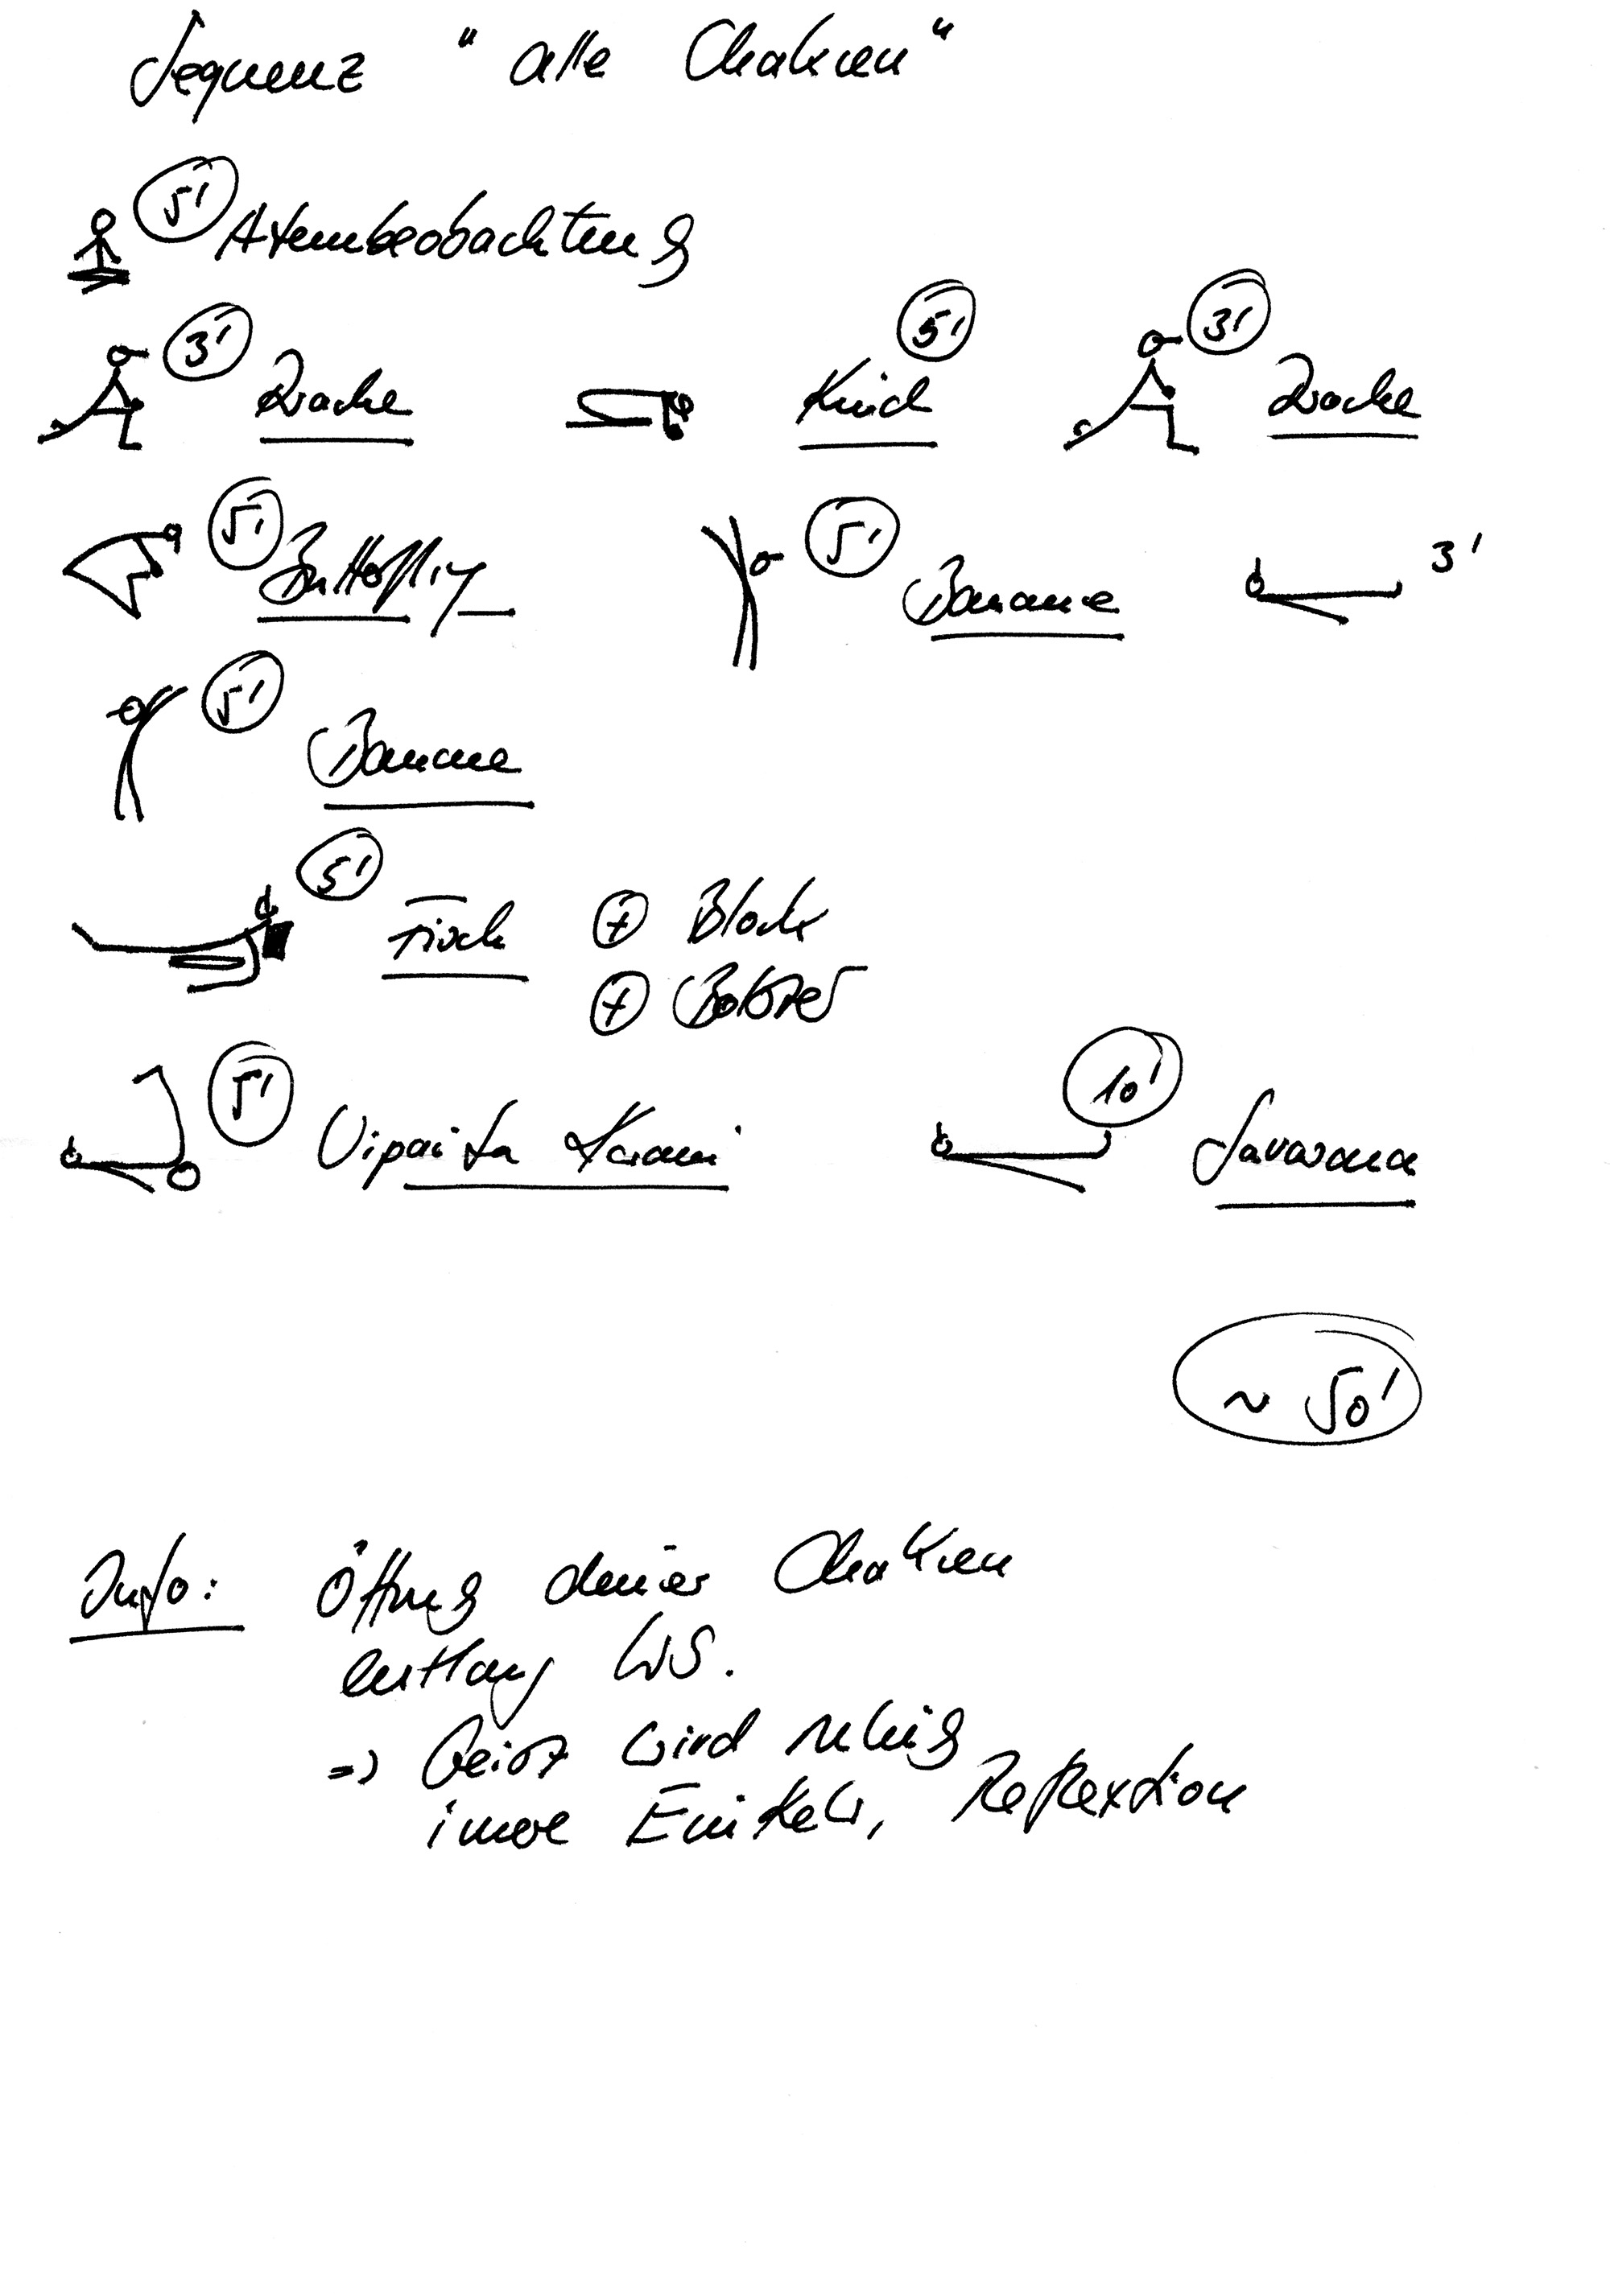 Sequenz "alle Chakren"
5' Atembeobachtung
3' Drache 5' Kind 3' Drache
5' Butterfly 5' Banane 3'
5' Banane
5' Fisch + Block
+ Bolster
5' Viparita Karani 10' Savasana
~ 50'
Info: Öffnung deiner Chakren
entlang WS.
=> Geist wird ruhig
innere Einkehr, Reflextion